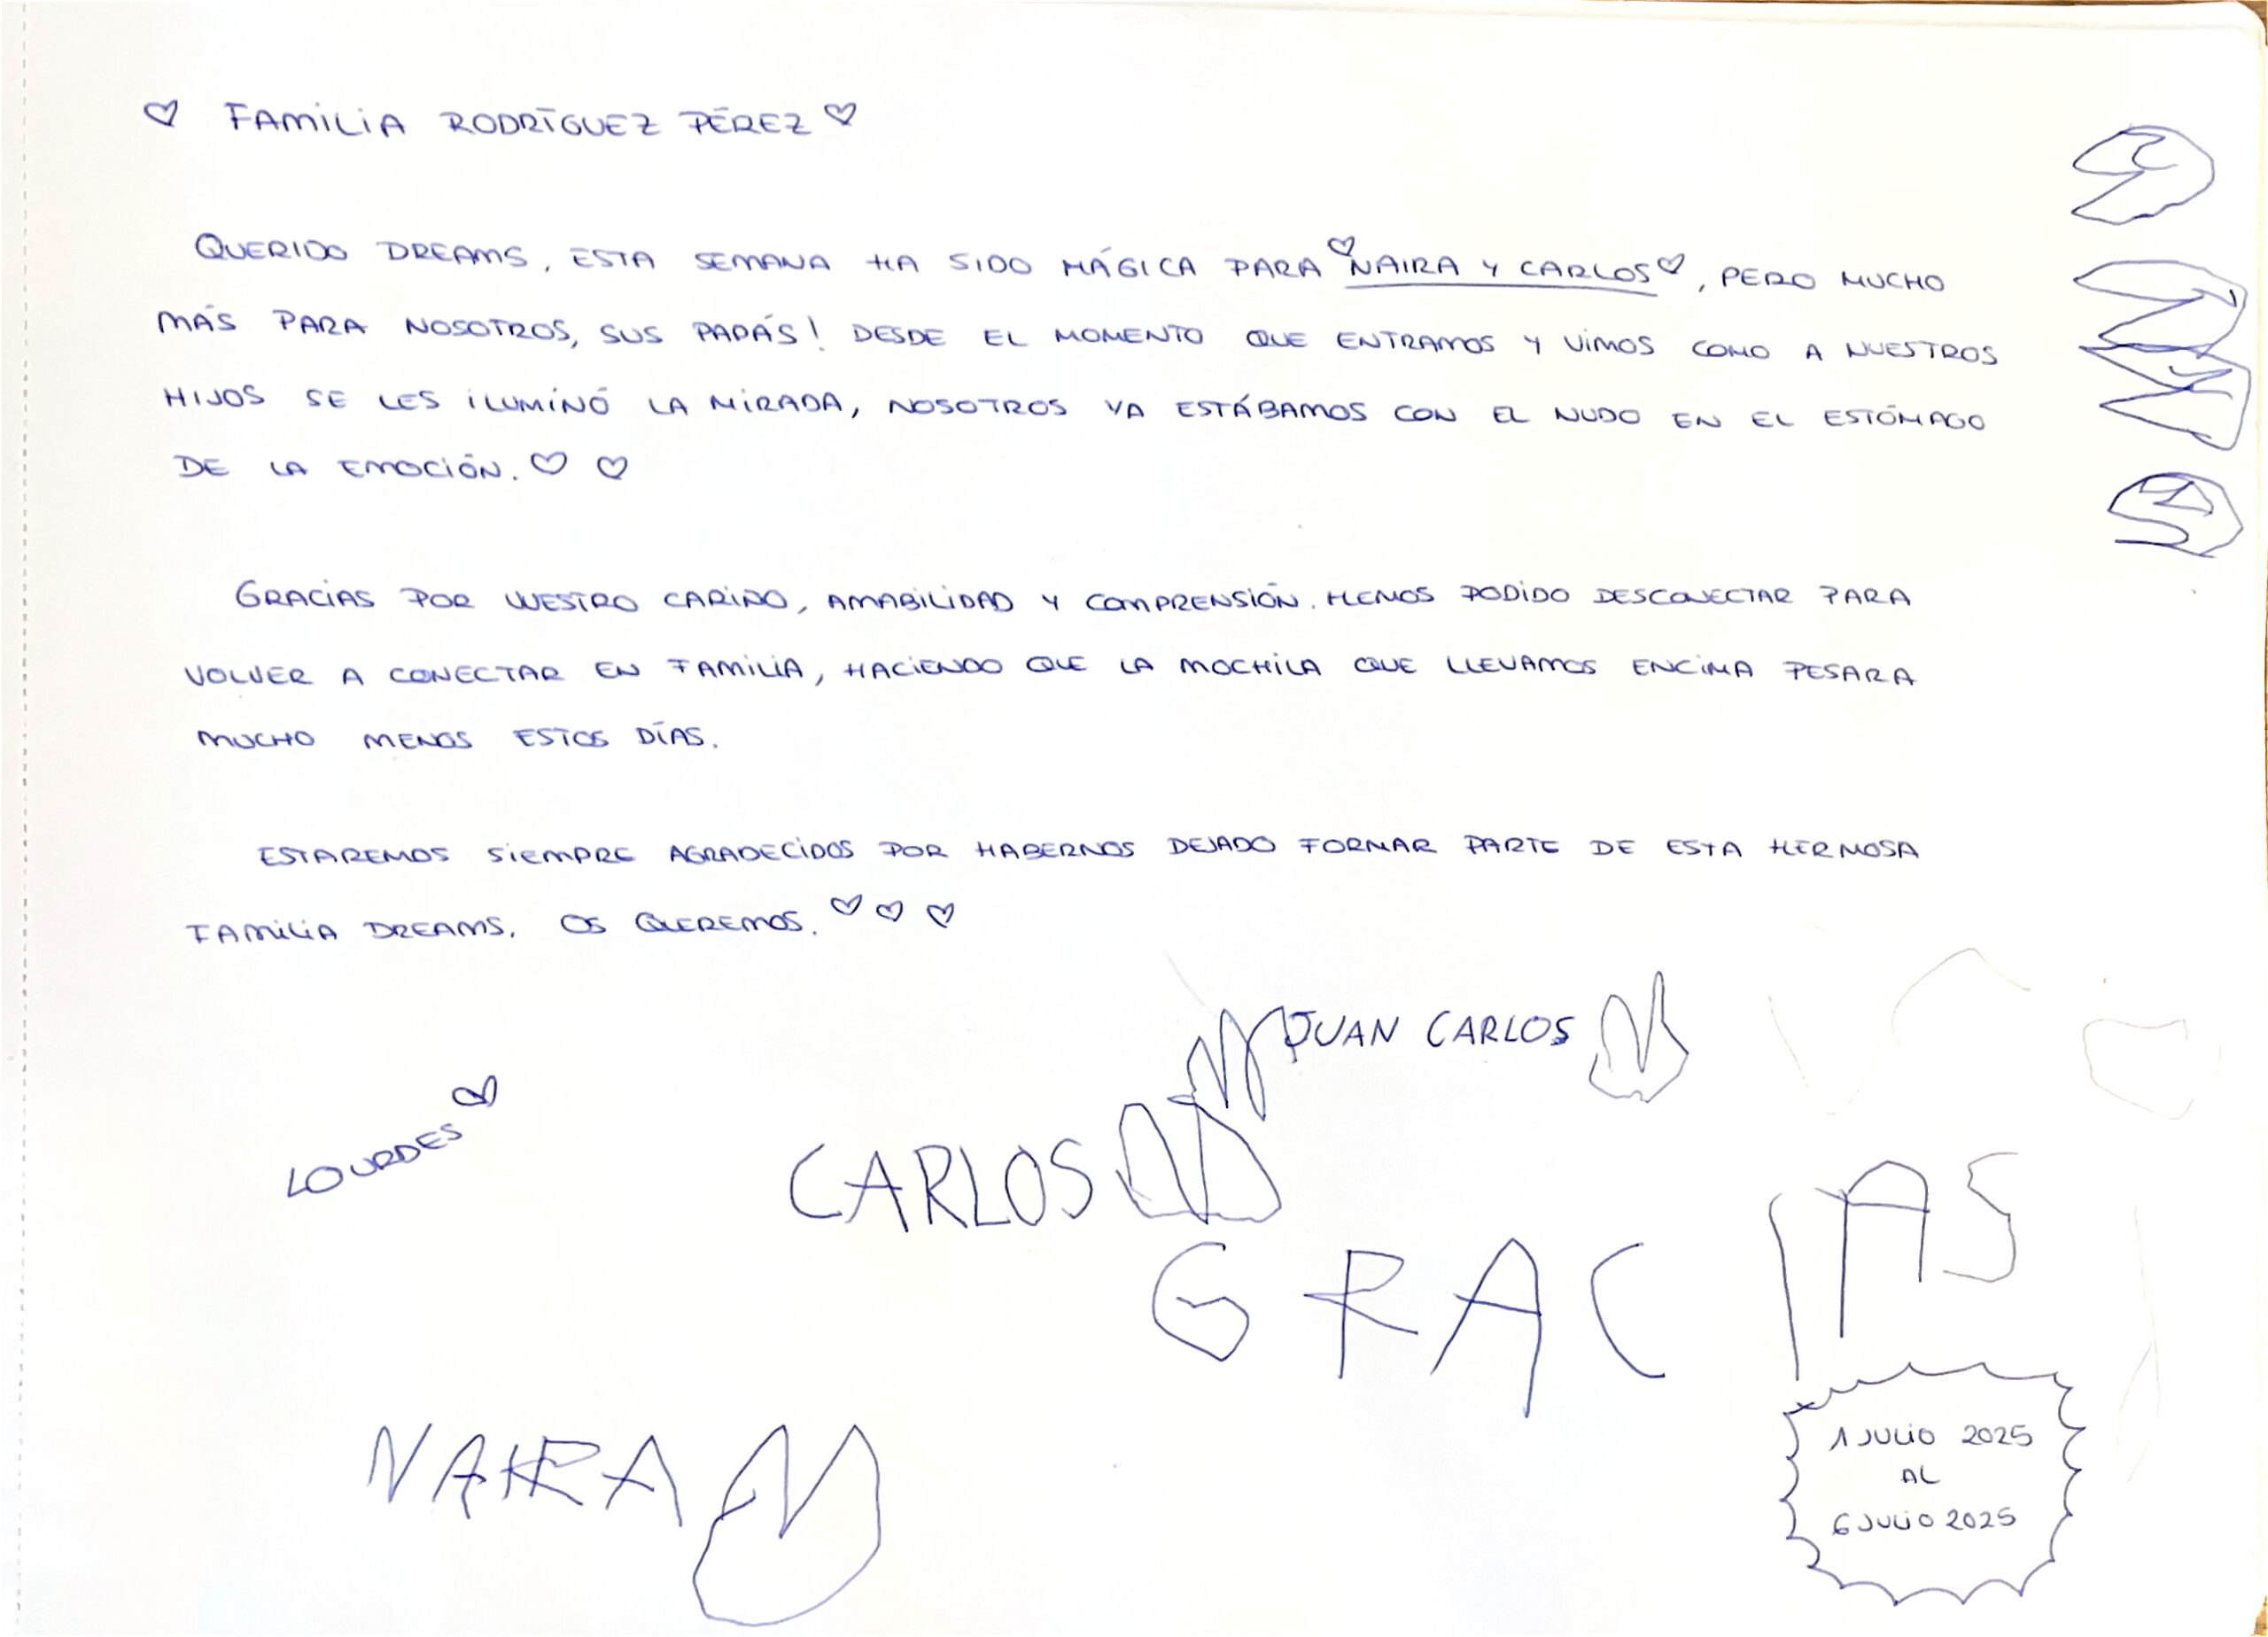 ♡ FAMILIA RODRÍGUEZ PÉREZ ♡
QUERIDO DREAMS, ESTA SEMANA HA SIDO MÁGICA PARA ♡NAIRA Y CARLOS♡, PERO MUCHO
MÁS PARA NOSOTROS, SUS PAPÁS! DESDE EL MOMENTO QUE ENTRAMOS Y VIMOS COMO A NUESTROS
HIJOS SE LES ILUMINÓ LA MIRADA, NOSOTROS YA ESTÁBAMOS CON EL NUDO EN EL ESTÓMAGO
DE LA EMOCIÓN. ♡ ♡
GRACIAS POR VUESTRO CARIÑO, AMABILIDAD Y COMPRENSIÓN. HEMOS PODIDO DESCONECTAR PARA
VOLVER A CONECTAR EN FAMILIA, HACIENDO QUE LA MOCHILA QUE LLEVAMOS ENCIMA PESARA
MUCHO MENOS ESTOS DÍAS.
ESTAREMOS SIEMPRE AGRADECIDOS POR HABERNOS DEJADO FORMAR PARTE DE ESTA HERMOSA
FAMILIA DREAMS. OS QUEREMOS. ♡ ♡ ♡
JUAN CARLOS
LOURDES ♡
CARLOS
GRACIAS
NAIRA
1 JULIO 2025
AL
6 JULIO 2025